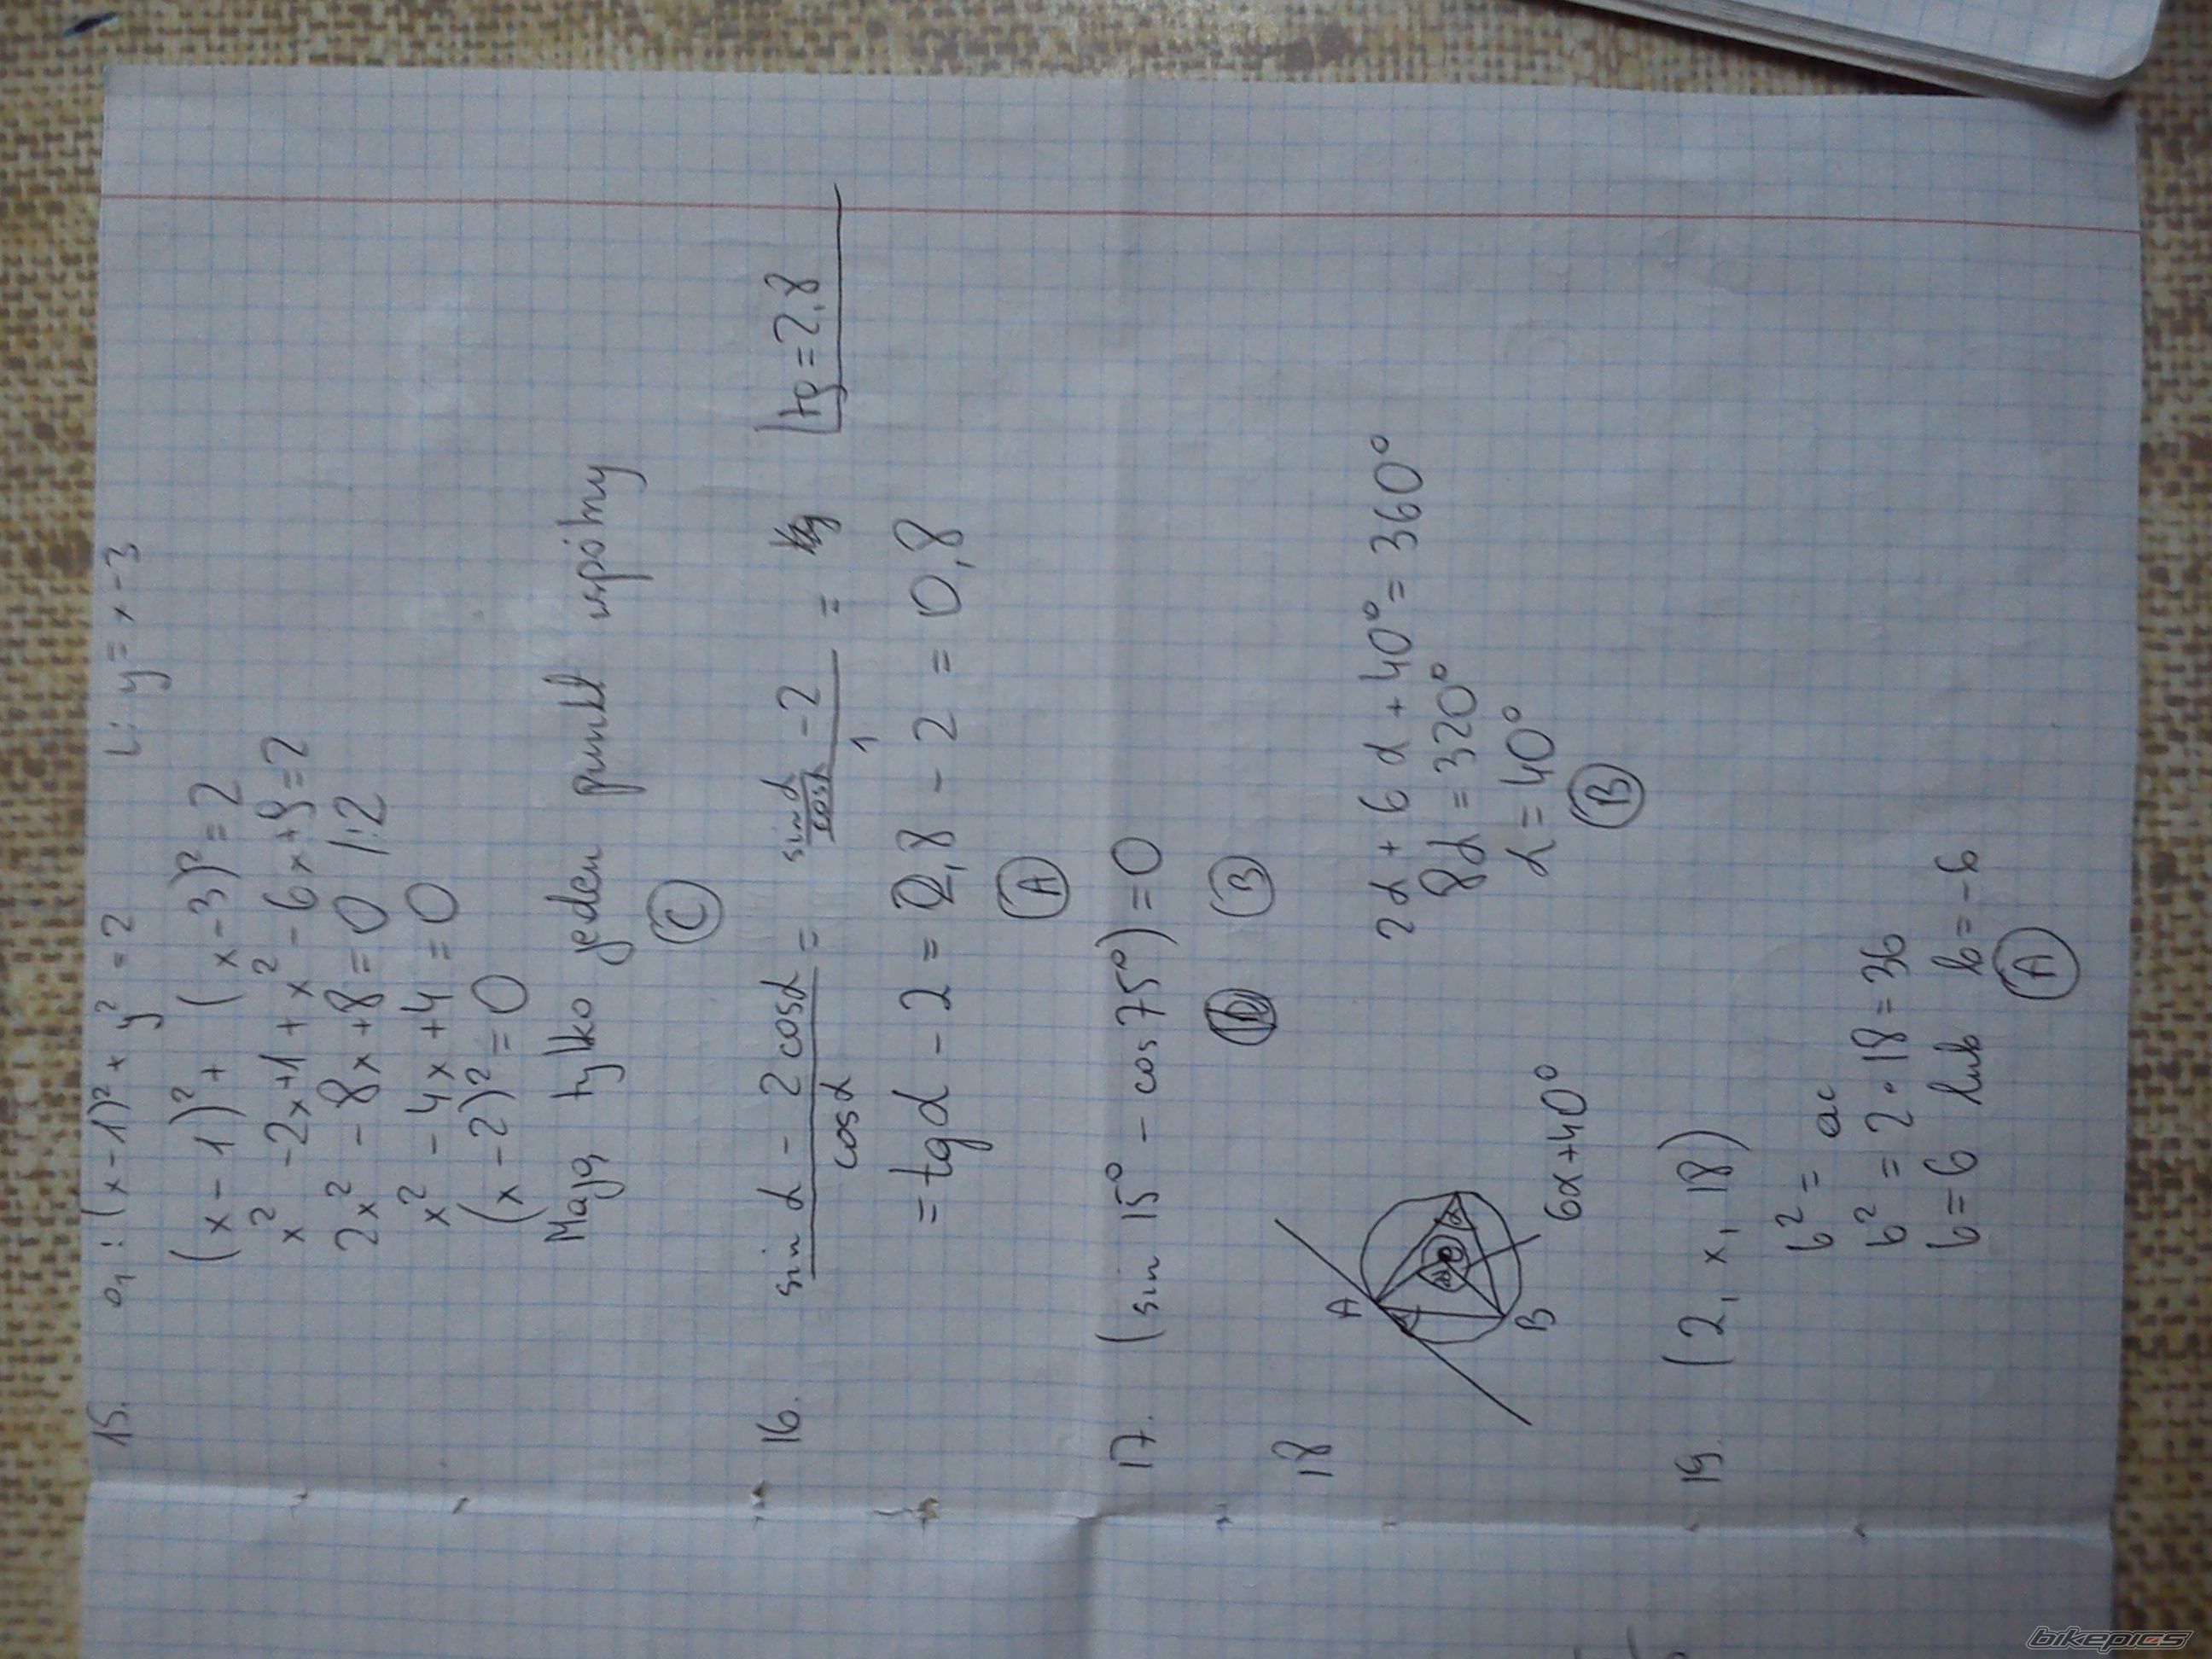 15. o₁: (x-1)² + y² = 2 l: y = x-3
(x-1)² + (x-3)² = 2
x² - 2x + 1 + x² - 6x + 9 = 2
2x² - 8x + 8 = 0 /:2
x² - 4x + 4 = 0
(x-2)² = 0
Mają tylko jeden punkt wspólny
C
16. (sin α - 2 cos α)/cos α = (sin α/cos α - 2)/1 = tg = 2,8
= tg α - 2 = 2,8 - 2 = 0,8
A
17. (sin 15° - cos 75°) = 0
B
18
A
B
6α+40°
2α + 6α + 40° = 360°
8α = 320°
α = 40°
B
19. (2, x, 18)
b² = ac
b² = 2 · 18 = 36
b = 6 lub b = -6
A
bikepics